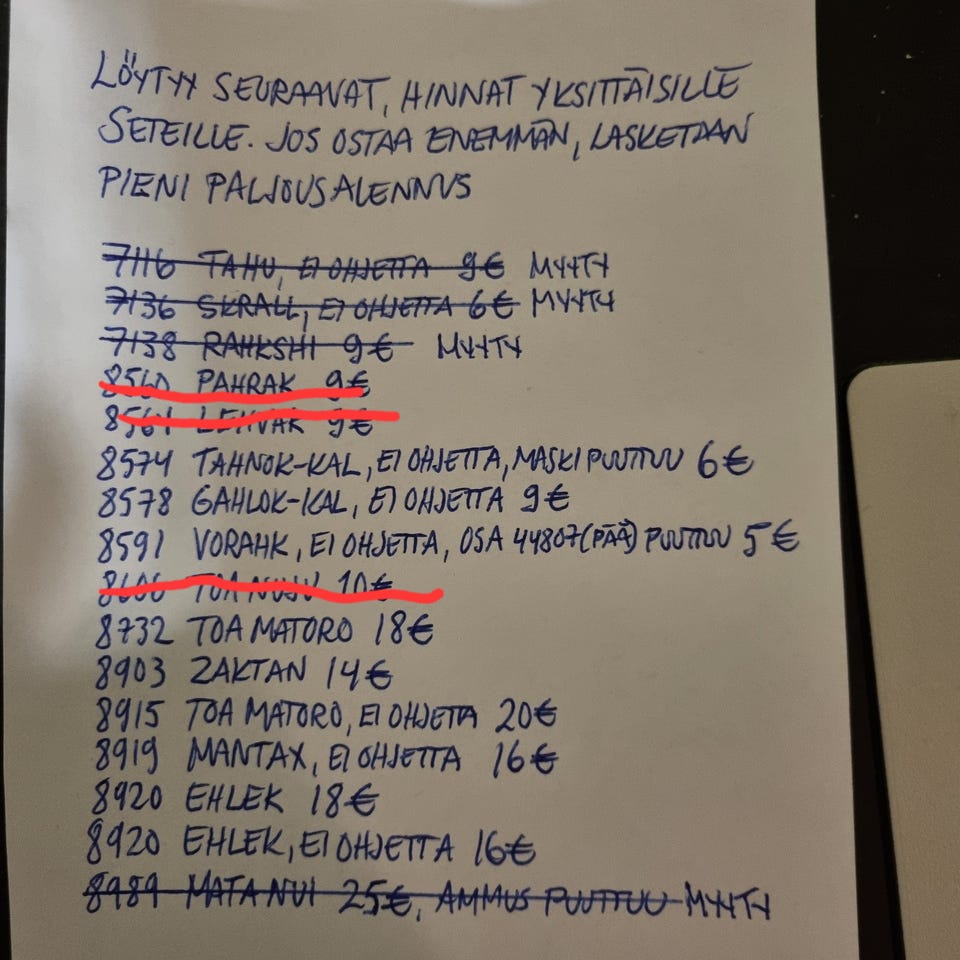 LÖYTYY SEURAAVAT, HINNAT YKSITTÄISILLE
SETEILLE. JOS OSTAA ENEMMÄN, LASKETAAN
PIENI PALJOUSALENNUS
7116 TAHU, EI OHJETTA 9€ MYYTY
7136 SKRALL, EI OHJETTA 6€ MYYTY
7138 RAHKSHI 9€ MYYTY
8560 PAHRAK 9€
8561 LEHVAK 9€
8574 TAHNOK-KAL, EI OHJETTA, MASKI PUUTTUU 6€
8578 GAHLOK-KAL, EI OHJETTA 9€
8591 VORAHK, EI OHJETTA, OSA 44807 (PÄÄ) PUUTTUU 5€
8606 TOA NUJU 10€
8732 TOA MATORO 18€
8903 ZAKTAN 14€
8915 TOA MATORO, EI OHJETTA 20€
8919 MANTAX, EI OHJETTA 16€
8920 EHLEK 18€
8920 EHLEK, EI OHJETTA 16€
8989 MATA NUI 25€, AMMUS PUUTTUU MYYTY